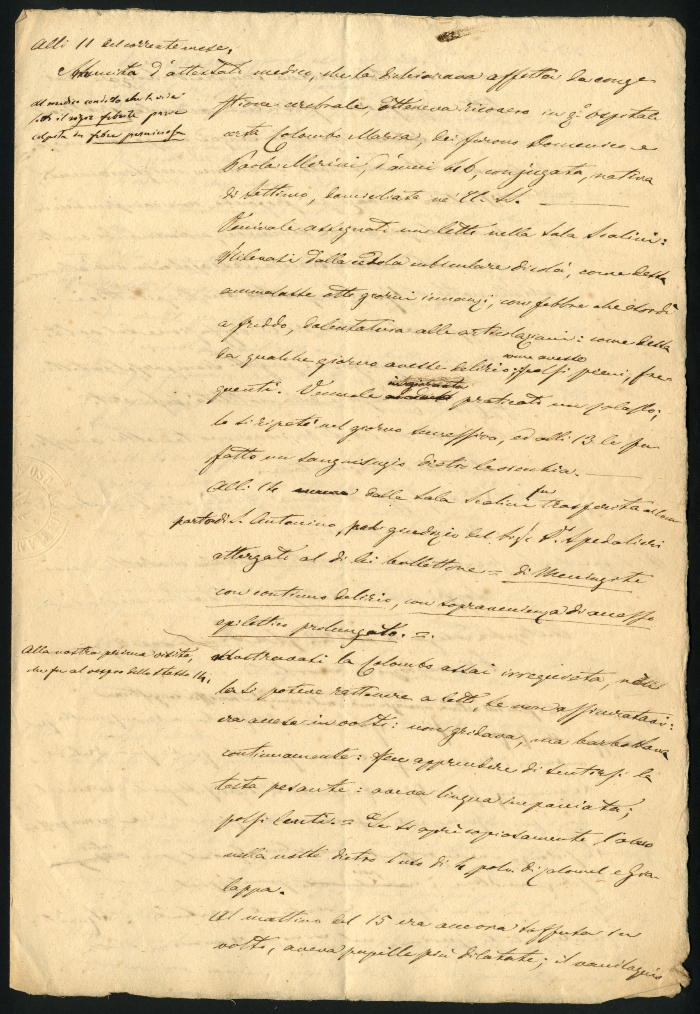 Alli 11 del corrente mese,
Munita d'attestato medico, che la dichiarava affetta da conge
stione cerebrale, otteneva ricovero in q.o ospitale
certa Colombo Maria, dei furono Domenico e
Paola Merini, d'anni 46, conjugata, nativa
di Settimo, domiciliata ne' CC. SS.
al medico condotto che la vide
sotto il vigor febrile parve
colpita da febre perniciosa
Venivale assegnato un letto nella Sala Scalini:
Rilevasi dalla cedola cubiculare di colà, come dessa
ammalasse otto giorni innanzi, con febbre che esordì
a freddo, dolentatura alle articolazioni: come dessa
da qualche giorno avesse delirio; come avesse polsi pieni, fre
quenti. Vennele in giornata praticato un salasso;
lo si ripetè nel giorno successivo, ed alli 13 le fu
fatto un sanguisugio dietro le orecchie.
Alli 14 dalla Sala Scalini fu trasferita al Com
parto di S. Antonino, per giudizio del Sig.r D.r Spedalieri
attergato al di lei bollettone = di Meningite
con continuo delirio, con sopravenienza di accesso
epilettico prolungato. =.
Alla nostra prima visita,
che fu al vespro dello stesso 14,
mostravasi la Colombo assai irrequieta, nè
la si poteva rattenere a letto, se non assicurata:
era accesa in volto: non gridava, ma barbottava
continuamente: fea apprendere di sentirsi la
testa pesante: aveva lingua impaniata;
polsi lenti. = Le si aprì copiosamente l'alvo
nella notte dietro l'uso di 4 polv. di Calomel e Gia
lappa.
Al mattino del 15 era ancora suffusa in
volto, aveva pupille più dilatate; il vaniloquio